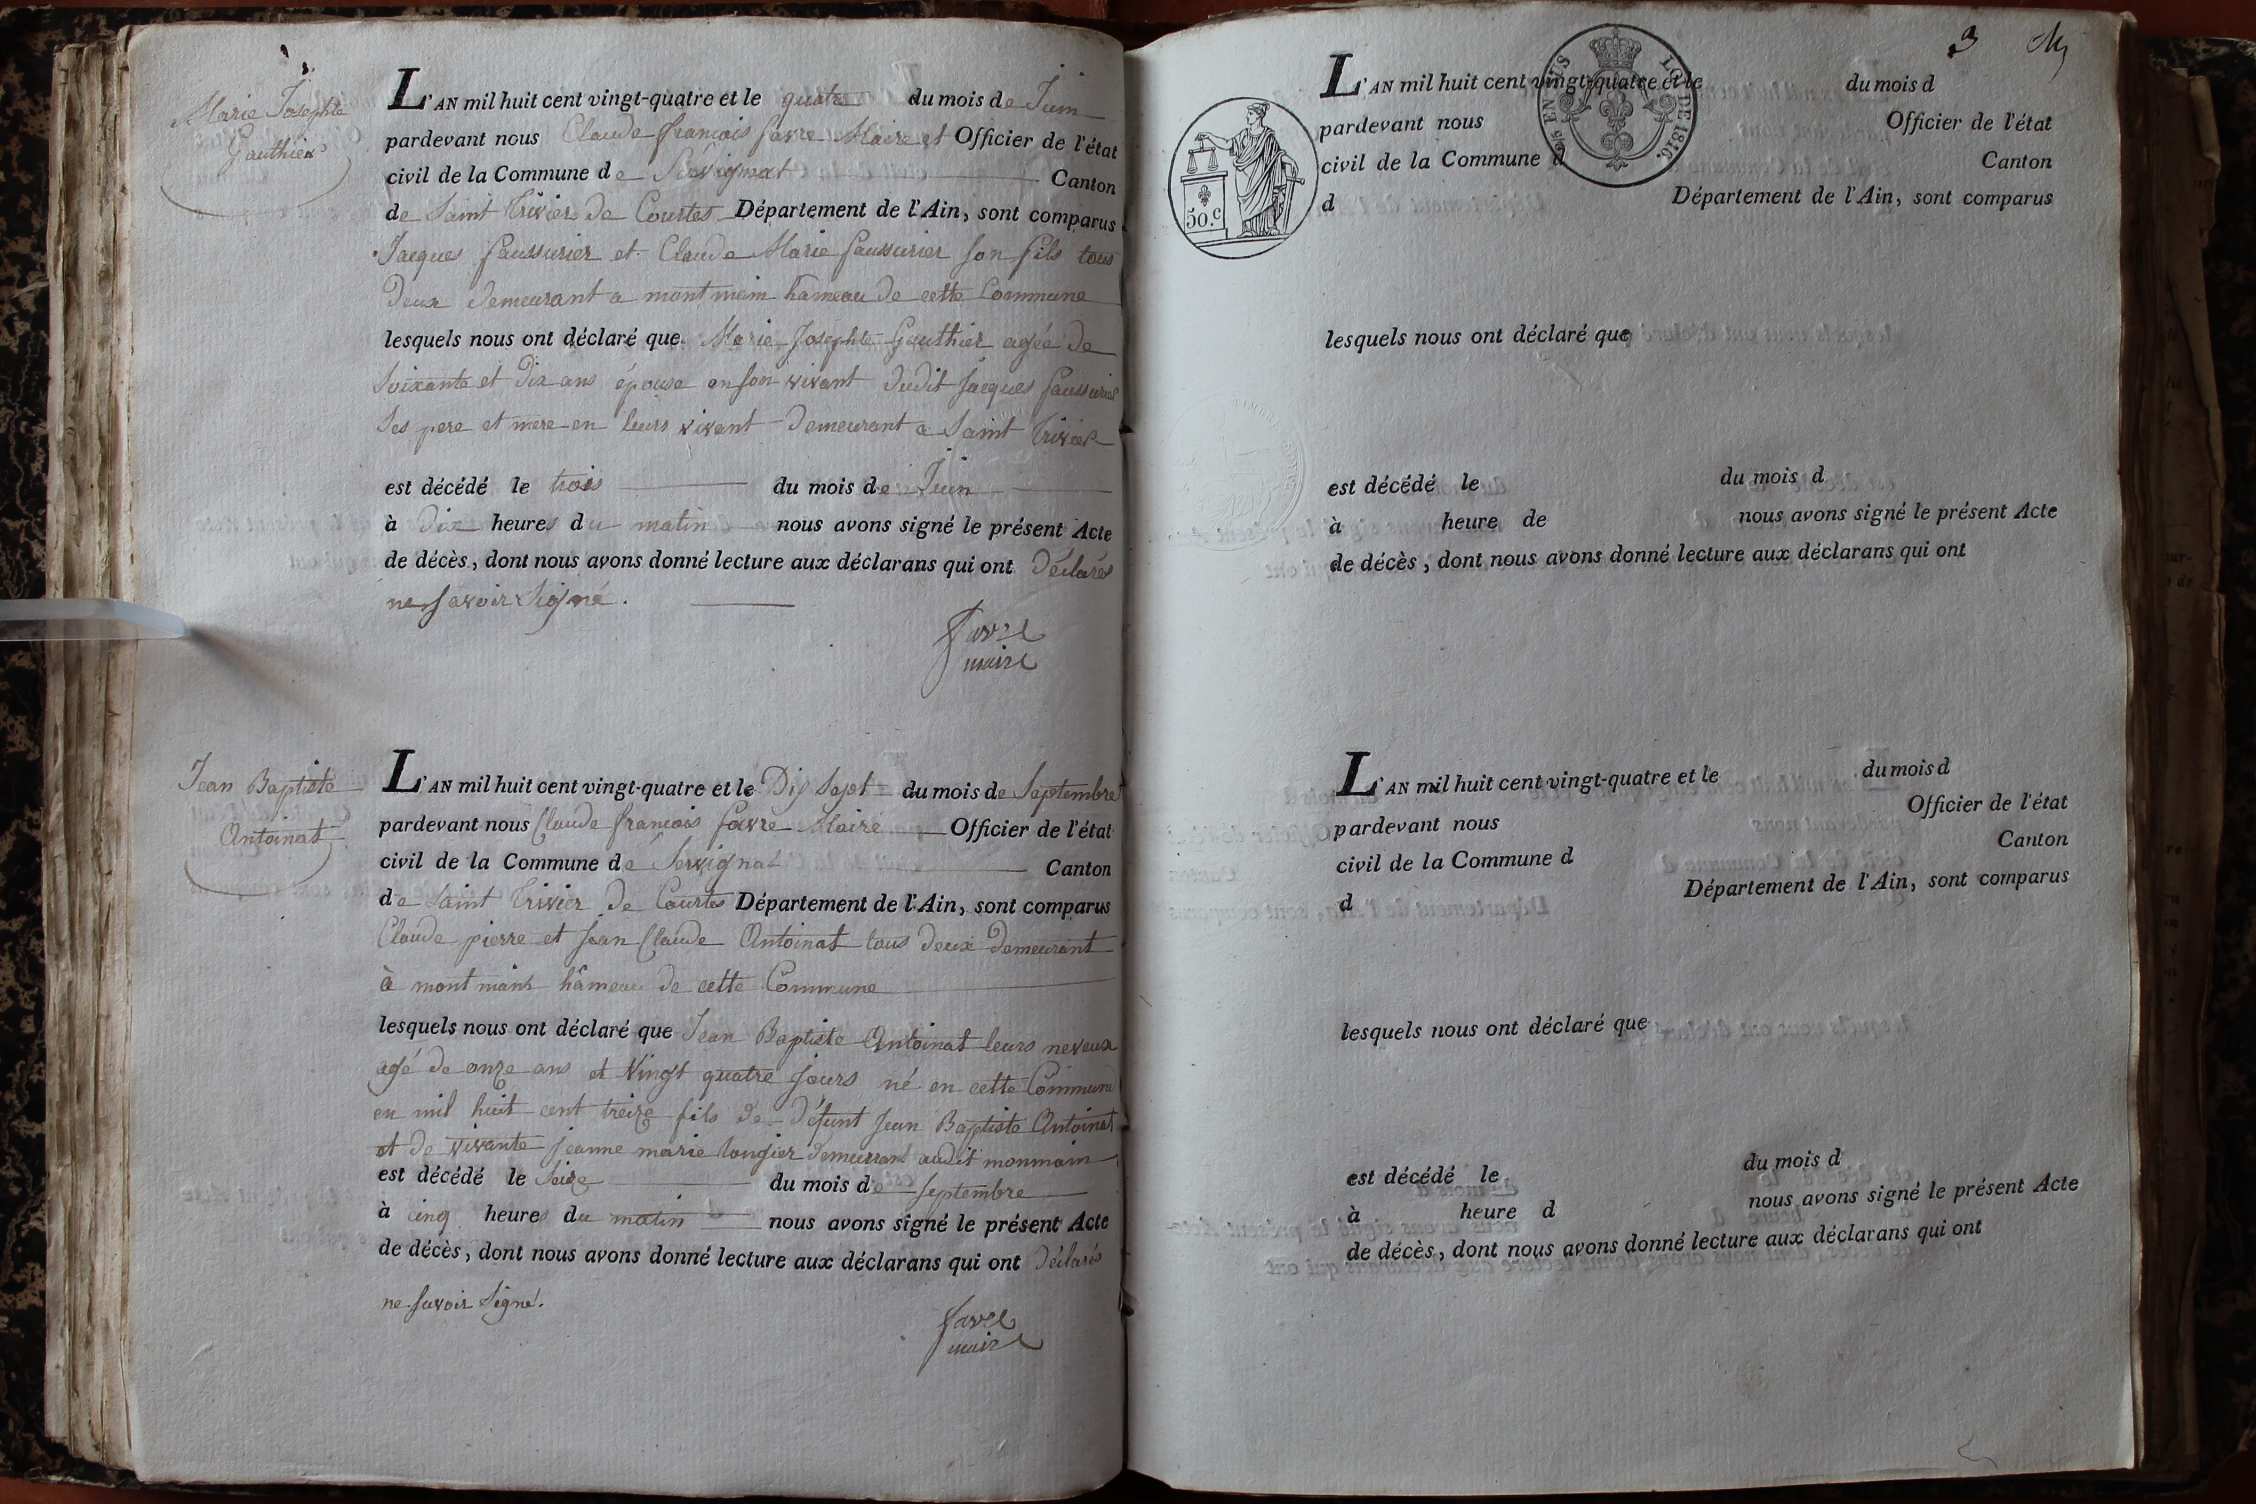 Marie Josephte
Gauthier
L'AN mil huit cent vingt-quatre et le quatre du mois de Juin
pardevant nous Claude francois favre Maire et Officier de l'état
civil de la Commune de Servignat Canton
de Saint Trivier de Courtes Département de l'Ain, sont comparus
Jacques faussurier et Claude Marie faussurier son fils tous
deux demeurant a montmein hameau de cette Commune
lesquels nous ont déclaré que Marie Josephte Gauthier agée de
Soixante et Dix ans épouse en son vivant dudit Jacques faussurier
Ses pere et mere en leurs vivant Demeurant a Saint Trivier
est décédé le trois du mois de Juin
à dix heures du matin nous avons signé le présent Acte
de décès, dont nous avons donné lecture aux déclarans qui ont Déclarés
ne savoir Signé.
favre
maire
Jean Baptiste
Antoinat
L'AN mil huit cent vingt-quatre et le Dix Sept du mois de Septembre
pardevant nous Claude francois favre Maire Officier de l'état
civil de la Commune de Servignat Canton
de Saint Trivier de Courtes Département de l'Ain, sont comparus
Claude pierre et Jean Claude Antoinat tous deux Demeurant
à mont main hâmeau de cette Commune
lesquels nous ont déclaré que Jean Baptiste Antoinat leurs neveux
agé de onze ans et Vingt quatre jours né en cette Commune
en mil huit cent treize fils de Défunt Jean Baptiste Antoinat
et de vivante jeanne marie longier demeurant audit monmain
est décédé le Seize du mois de septembre
à cinq heures du matin nous avons signé le présent Acte
de décès, dont nous avons donné lecture aux déclarans qui ont Déclarés
ne savoir Signé.
favre
maire
3
50.c
LOI DE 1816.
L'AN mil huit cent vingt-quatre et le du mois d
pardevant nous Officier de l'état
civil de la Commune d Canton
d Département de l'Ain, sont comparus
lesquels nous ont déclaré que
est décédé le du mois d
à heure de nous avons signé le présent Acte
de décès, dont nous avons donné lecture aux déclarans qui ont
L'AN mil huit cent vingt-quatre et le du mois d
pardevant nous Officier de l'état
civil de la Commune d Canton
d Département de l'Ain, sont comparus
lesquels nous ont déclaré que
est décédé le du mois d
à heure d nous avons signé le présent Acte
de décès, dont nous avons donné lecture aux déclarans qui ont